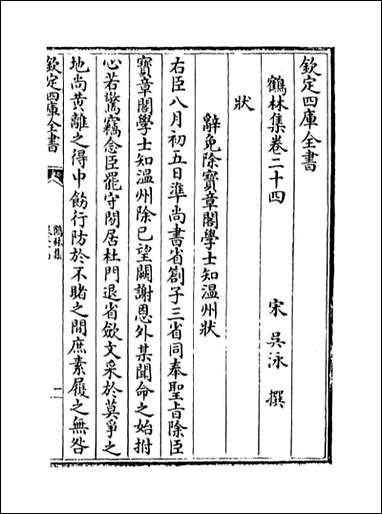 欽定四庫全書
鶴林集卷二十四
宋 吳泳 撰
狀
辭免除寶章閣學士知溫州狀
右臣八月初五日準尚書省劄子三省同奉聖旨除臣
寶章閣學士知溫州除已望闕謝恩外某聞命之始拊
心若驚竊念臣罷守閒居杜門退省斂文采於莫爭之
地尚黃離之得中飭行防於不睹之間庶素履之無咎
欽定四庫全書
鶴林集